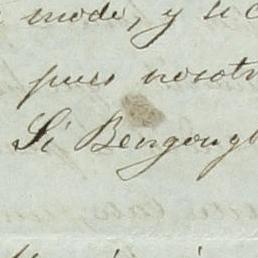 modo, y si
pues nosotr
Si Bengough